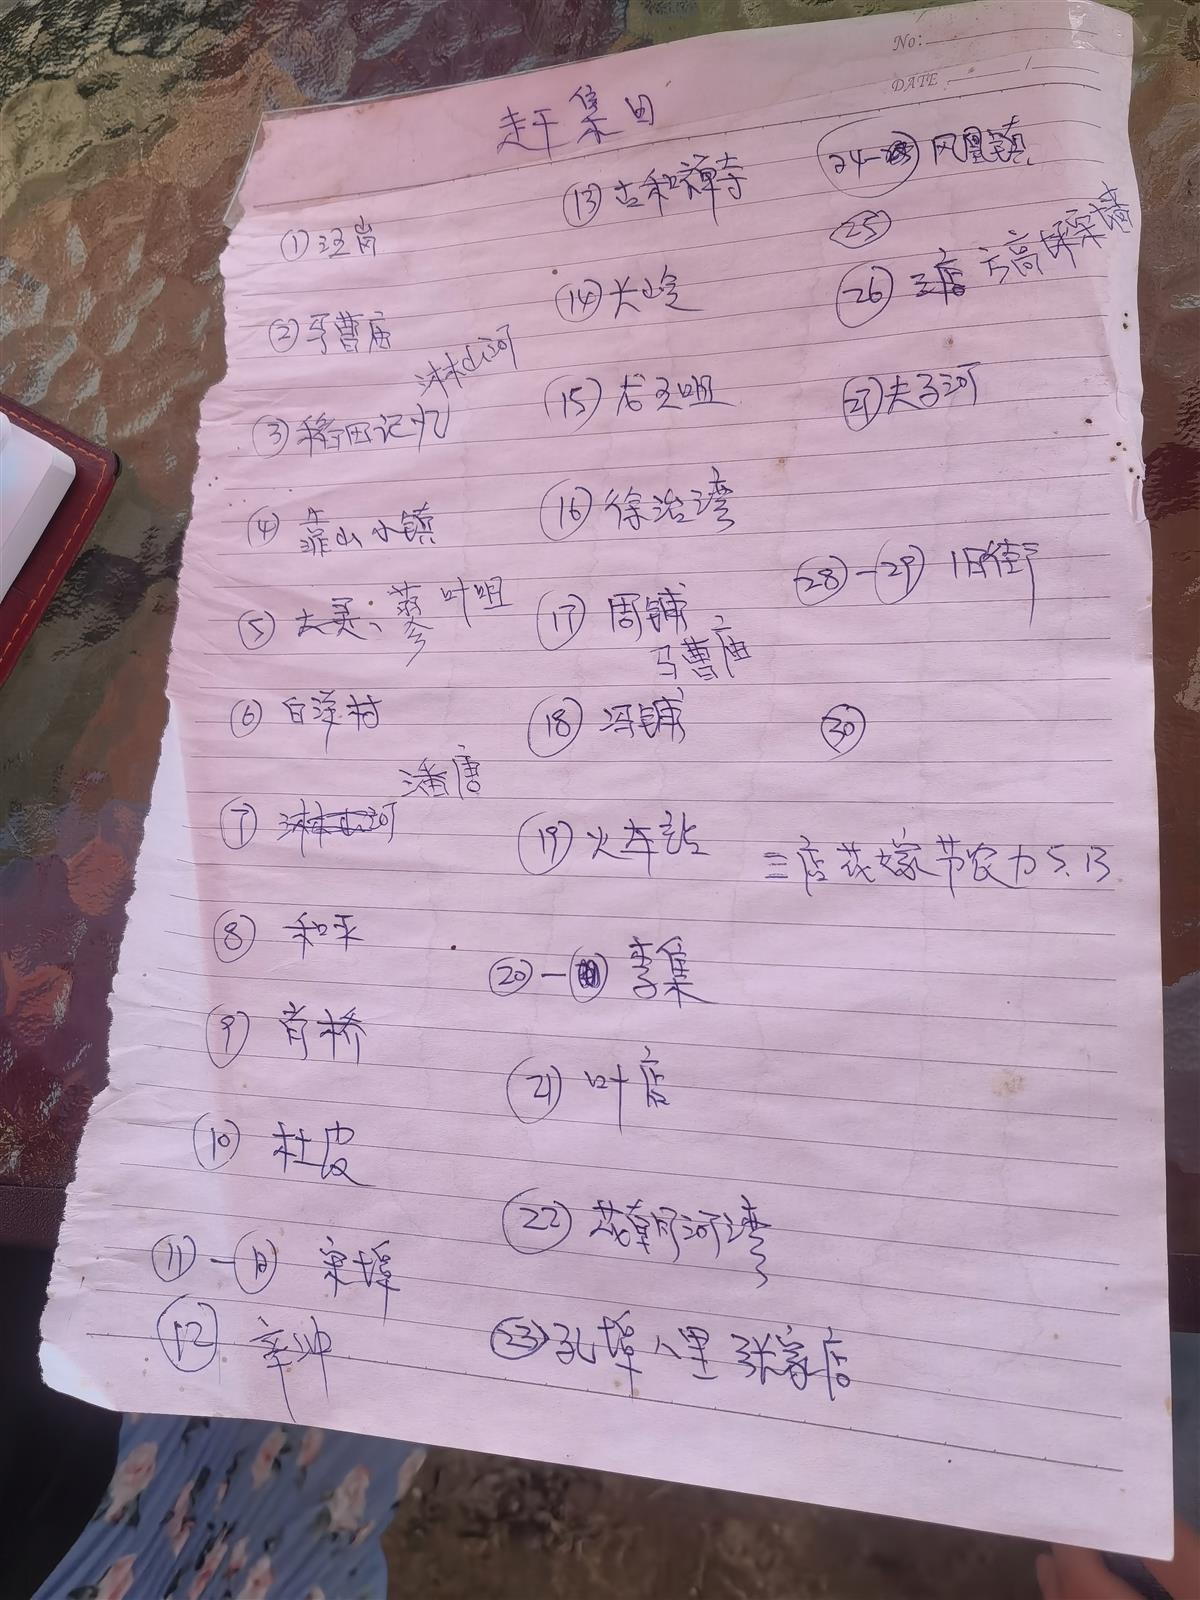 No:
DATE
赶集日
① 汪岗
② 马曹庙
淋山河
③ 稻田记忆
④ 靠山小镇
⑤ 大灵、蓼叶咀
⑥ 白洋村
潘唐
⑦ 淋山河
⑧ 和平
⑨ 肖桥
⑩ 杜皮
⑪— 宋埠
⑫ 辛冲
⑬ 古和禅寺
⑭ 长岭
⑮ 龙王咀
⑯ 徐治湾
⑰ 周铺
马曹庙
⑱ 冯铺
⑲ 火车站
⑳— 李集
㉑ 叶店
㉒ 花朝河湾
㉓ 孔埠 八里 张家店
㉔— 凤凰镇
㉕
㉖ 三店 方高坪
㉗ 夫子河
㉘—㉙ 旧街
㉚
三店花嫁节农力5.13